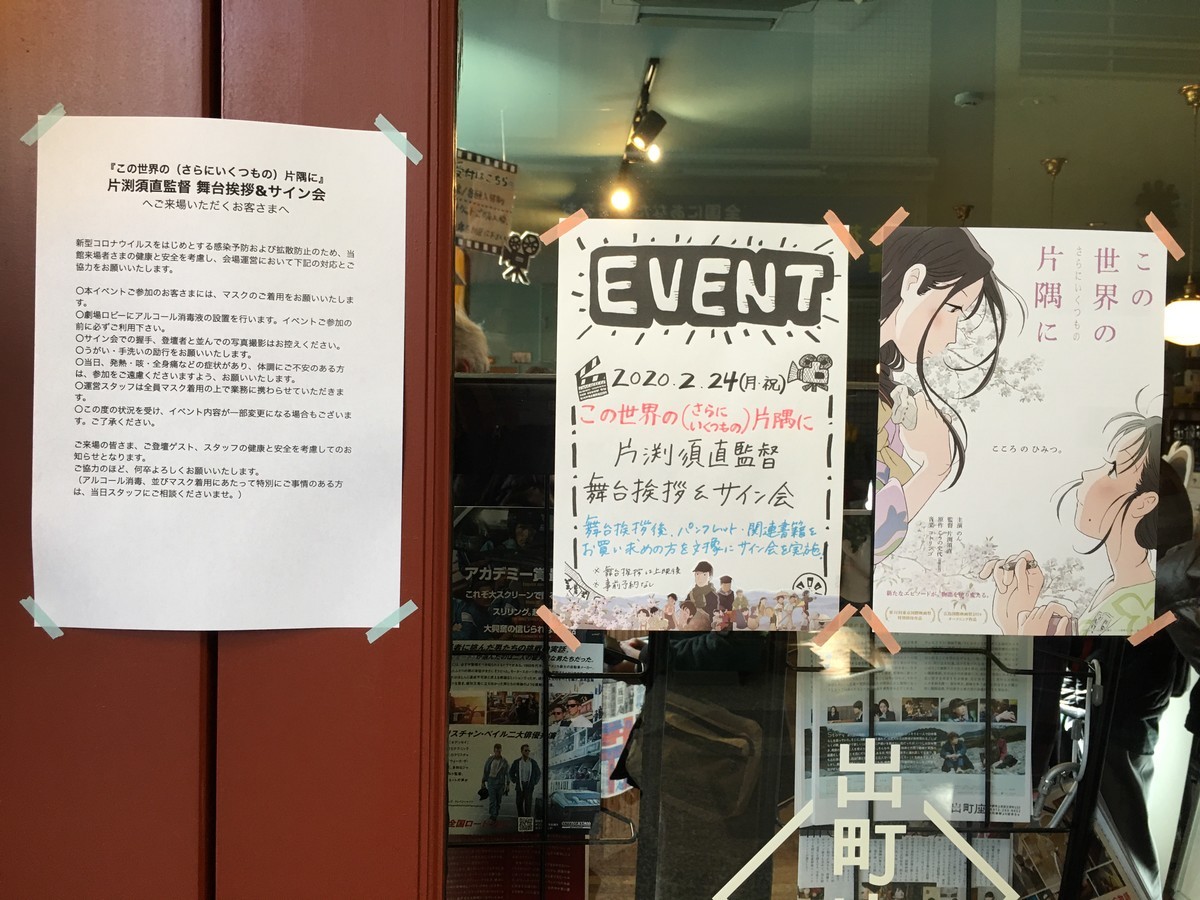 『この世界の（さらにいくつもの）片隅に』
片渕須直監督 舞台挨拶&サイン会
へご来場いただくお客さまへ
新型コロナウイルスをはじめとする感染予防および拡散防止のため、当
館来場者さまの健康と安全を考慮し、会場運営において下記の対応とご
協力をお願いいたします。
〇本イベントご参加のお客さまには、マスクのご着用をお願いいたしま
す。
〇劇場ロビーにアルコール消毒液の設置を行います。イベントご参加の
前に必ずご利用下さい。
〇サイン会での握手、登壇者と並んでの写真撮影はお控えください。
〇うがい・手洗いの励行をお願いいたします。
〇当日、発熱・咳・全身痛などの症状があり、体調にご不安のある方
は、参加をご遠慮くださいますよう、お願いいたします。
〇運営スタッフは全員マスク着用の上で業務に携わらせていただきま
す。
〇この度の状況を受け、イベント内容が一部変更になる場合もございま
す。ご了承ください。
ご来場の皆さま、ご登壇ゲスト、スタッフの健康と安全を考慮してのお
知らせとなります。
ご協力のほど、何卒よろしくお願いいたします。
（アルコール消毒、並びマスク着用にあたって特別にご事情のある方
は、当日スタッフにご相談くださいませ。）
EVENT
2020.2.24(月・祝)
この世界の(さらにいくつもの)片隅に
片渕須直監督
舞台挨拶&サイン会
舞台挨拶後、パンフレット・関連書籍を
お買い求めの方を対象にサイン会を実施。
※舞台挨拶は上映後
※事前予約なし
この
世界の
さらにいくつもの
片隅に
こころのひみつ。
主演 のん
監督 片渕須直
新たなエピソードが、物語を塗り変える。
アカデミー賞
これぞ大スクリーンで
スリリング
大興奮の信じられ
スチャン・ベイル二大俳優
全国ロー
出町座
出町